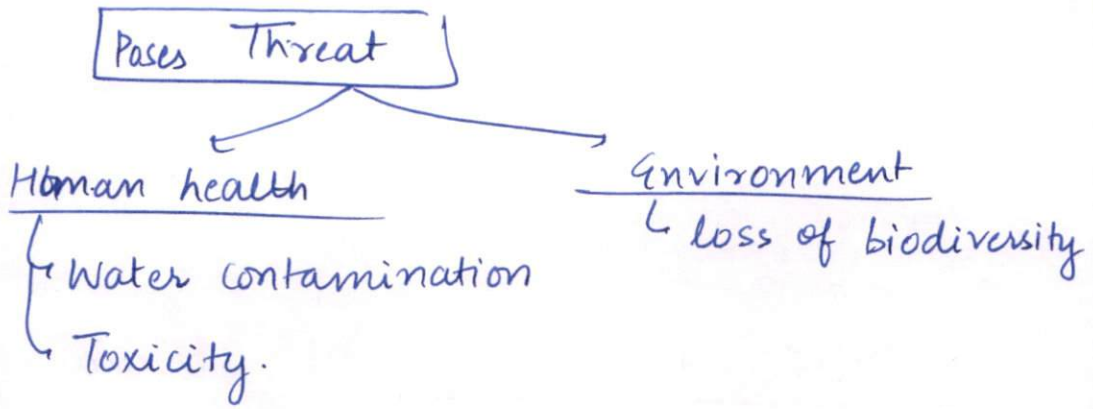 Poses Threat
Human health
Water contamination
Toxicity.
Environment
loss of biodiversity